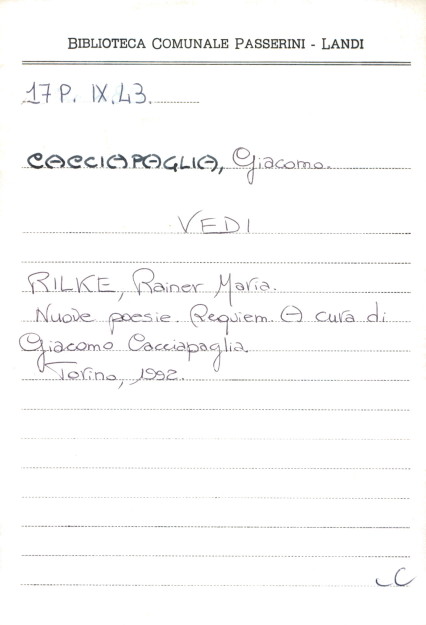 BIBLIOTECA COMUNALE PASSERINI - LANDI
17 P. IX.43.
CACCIAPAGLIA, Giacomo.
VEDI
RILKE, Rainer Maria.
Nuove poesie. Requiem. A cura di
Giacomo Cacciapaglia.
Torino, 1992.